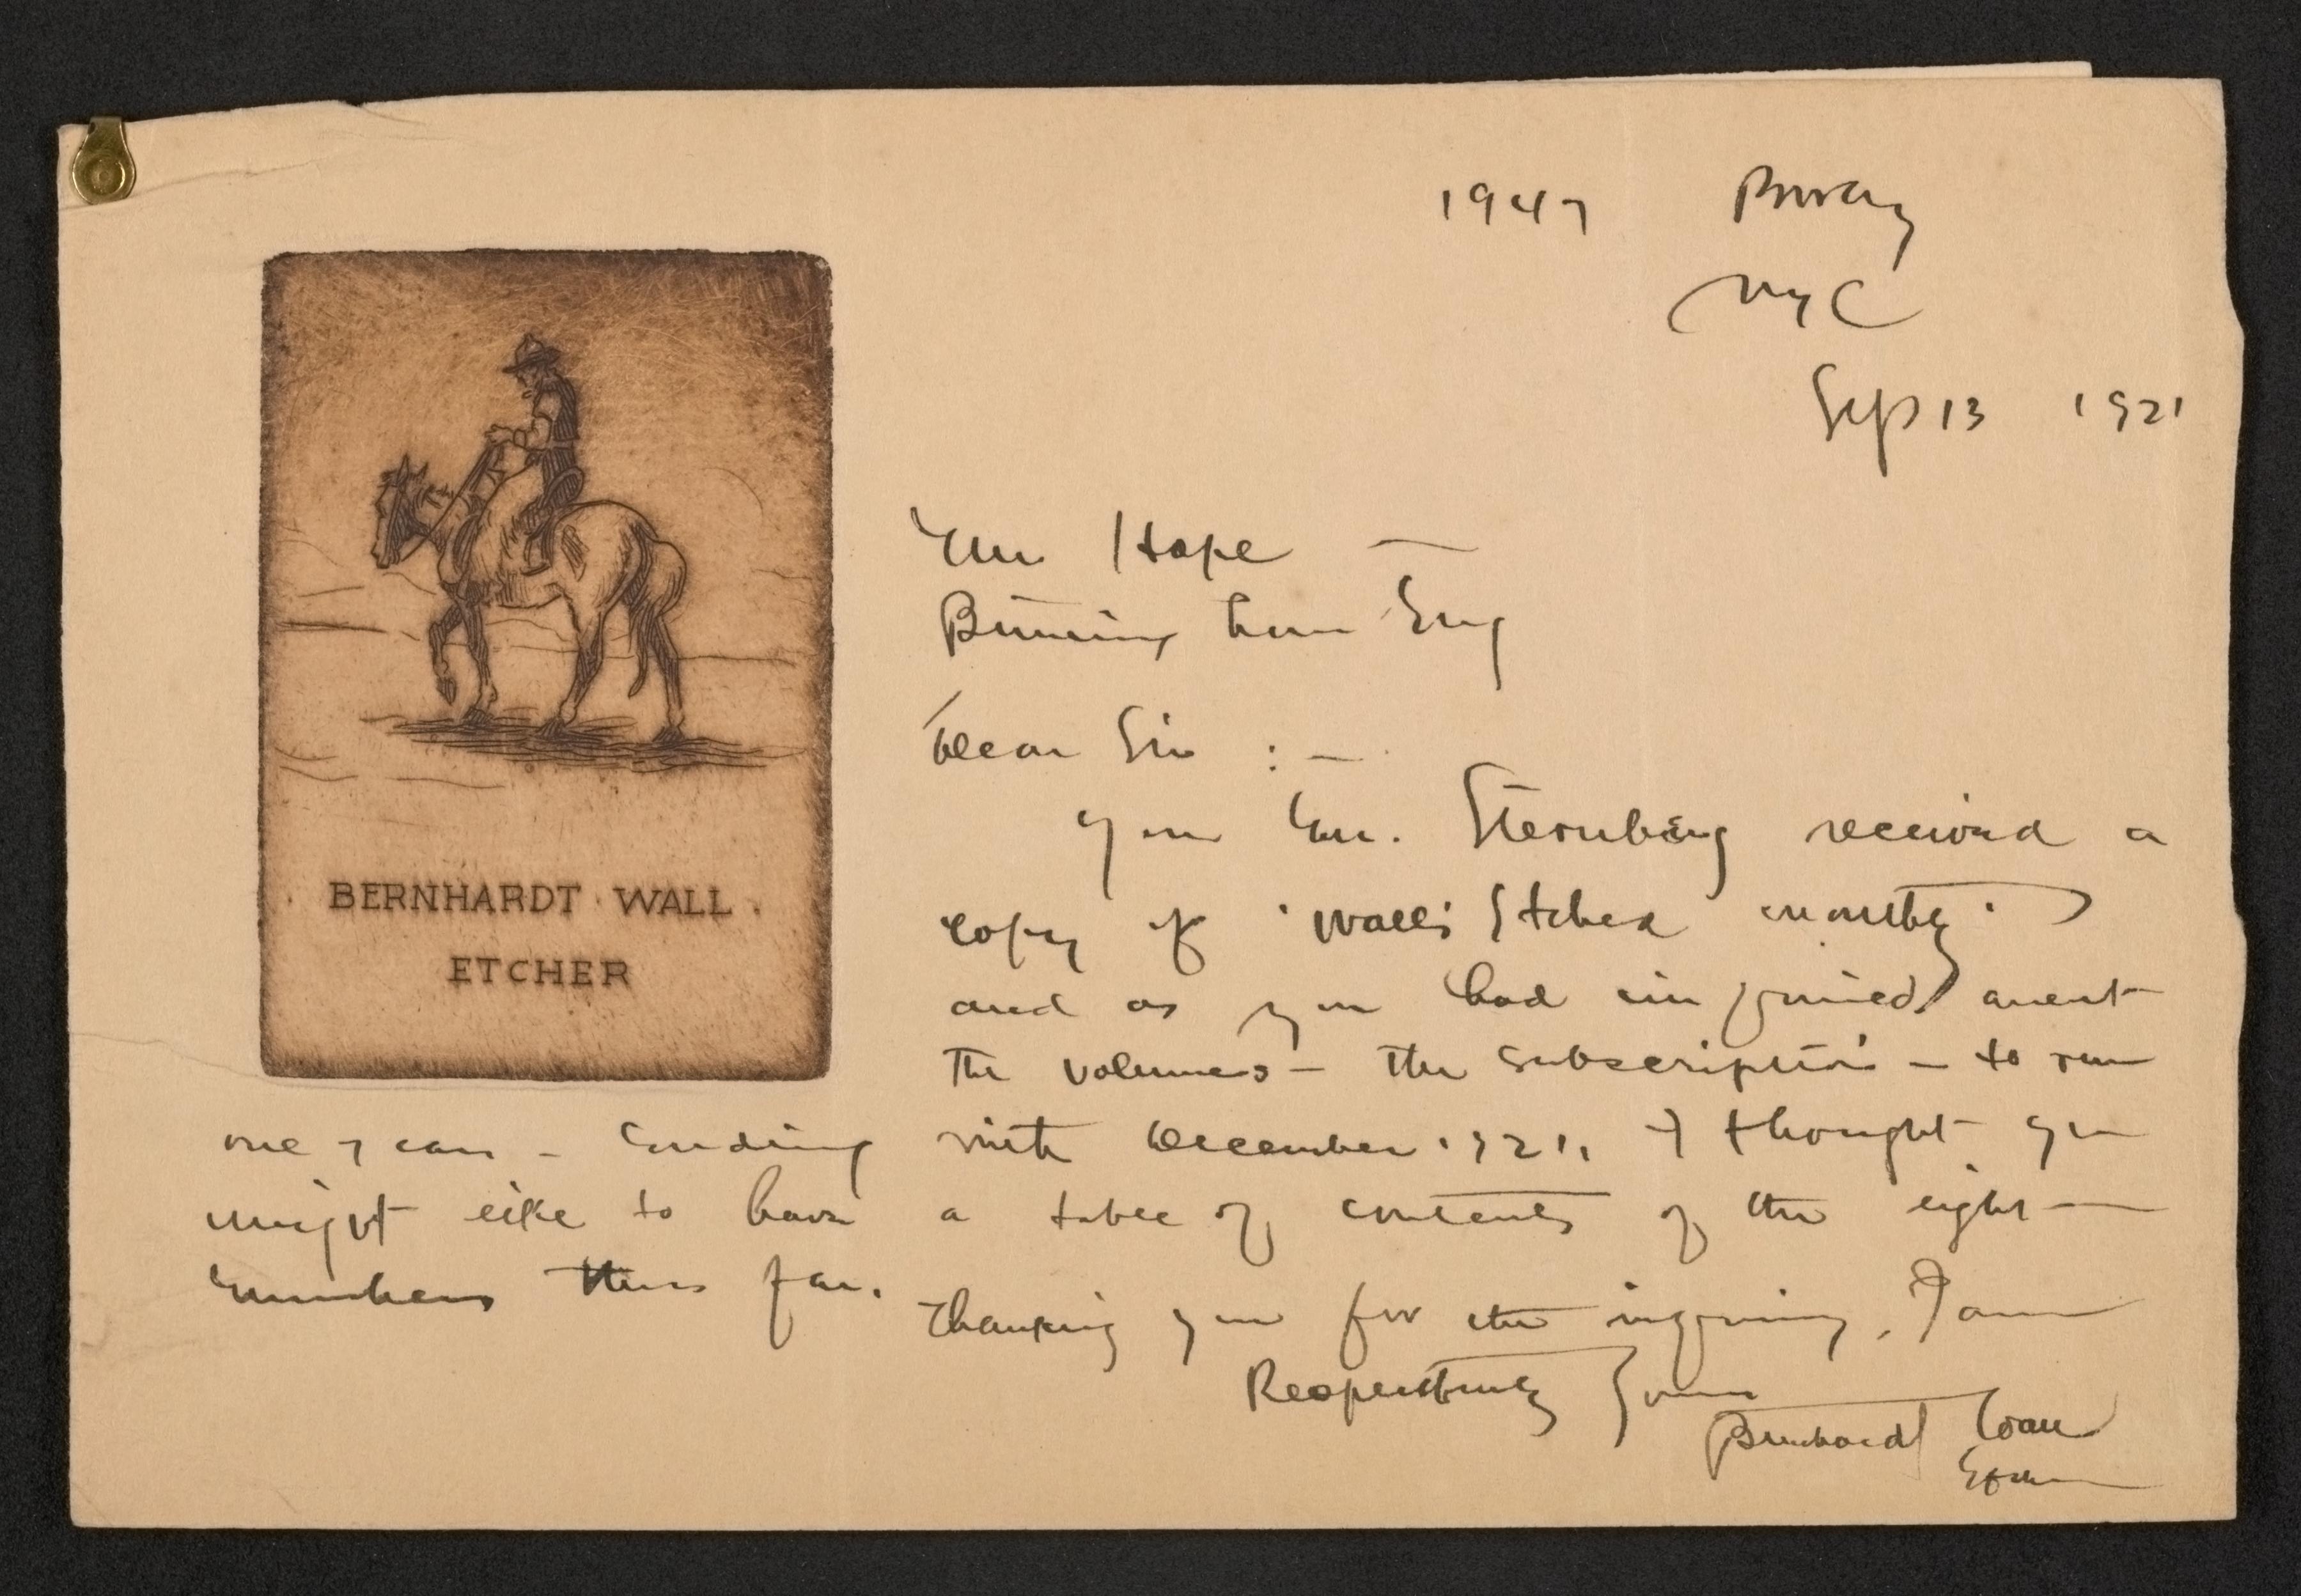 1947 Bway
NYC
Sep 13 1921
BERNHARDT · WALL ·
ETCHER
Mr Hope —
Birmingham Eng
Dear Sir : —
Your Mr. Sternberg received a
copy of "Wall's Etched Monthly"
and as you had inquired anent
the volumes — the subscription — to run
one year — Ending with December 1921. I thought you
might like to have a table of contents of the eight
numbers thus far.
Thanking you for the inquiry, I am
Respectfully Yours
Bernhardt Wall
Etcher